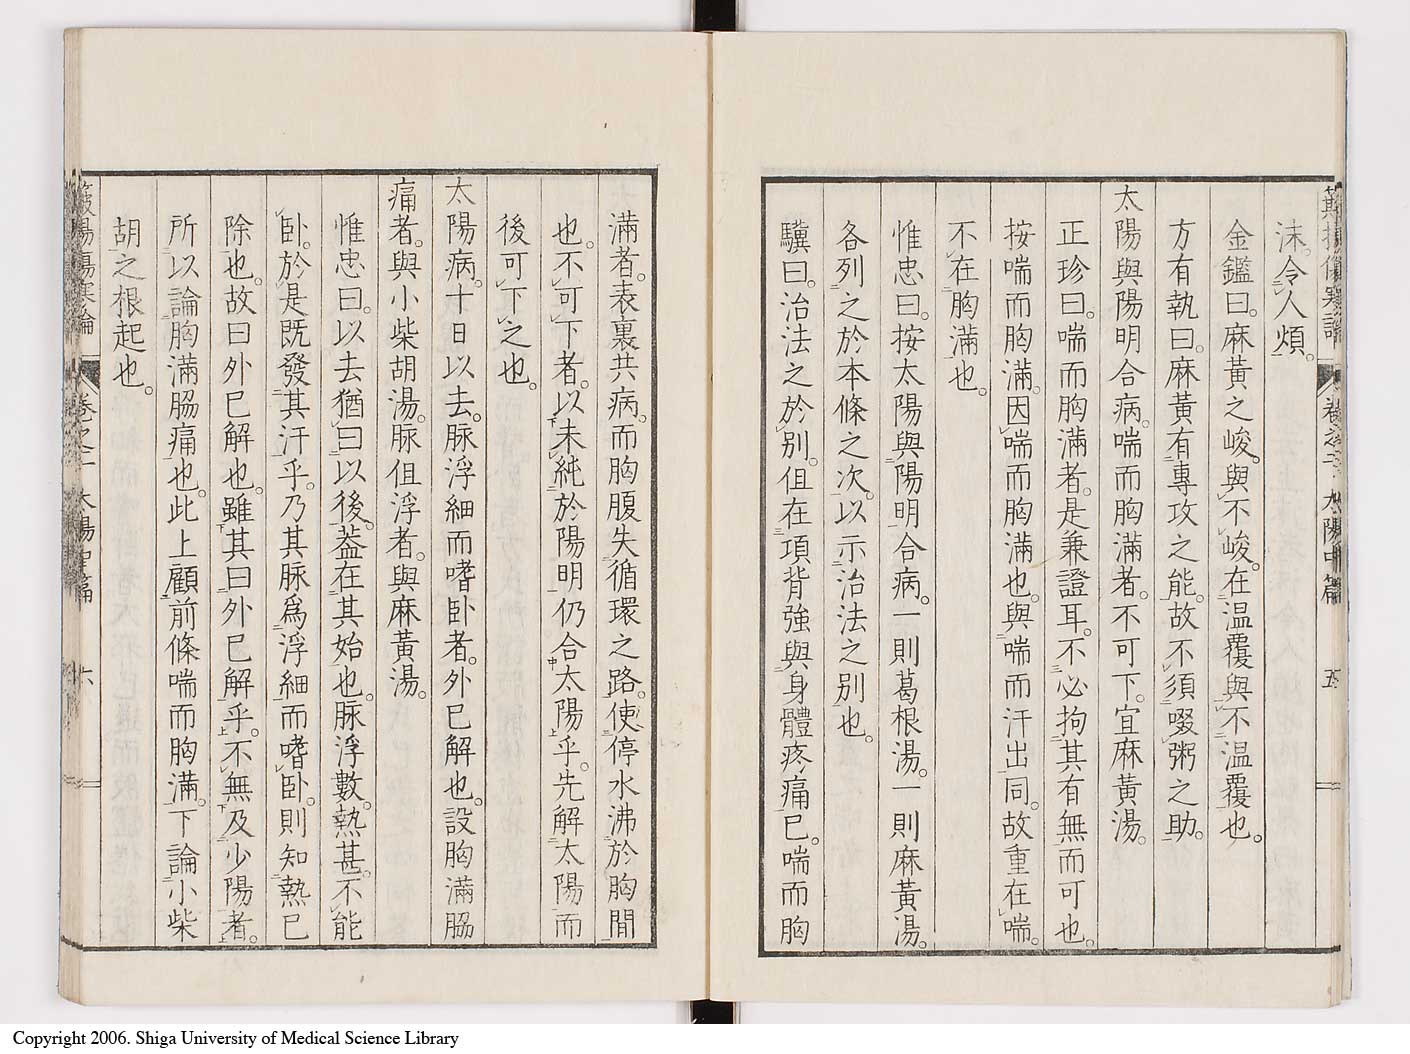 沫。令人煩。
金鑑曰。麻黃之峻。與不峻。在溫覆與不溫覆也。
方有執曰。麻黃有專攻之能。故不須啜粥之助。
太陽與陽明合病。喘而胸滿者。不可下。宜麻黃湯。
正珍曰。喘而胸滿者。是兼證耳。不必拘其有無而可也。
按喘而胸滿。因喘而胸滿也。與喘而汗出同。故重在喘。
不在胸滿也。
惟忠曰。按太陽與陽明合病。一則葛根湯。一則麻黃湯。
各列之於本條之次。以示治法之別也。
驥曰。治法之於別。但在項背強與身體疼痛已。喘而胸
滿者。表裏共病。而胸腹失循環之路。使停水沸於胸間
也。不可下者。以未純於陽明。仍合太陽乎。先解太陽而
後可下之也。
太陽病。十日以去。脉浮細而嗜卧者。外已解也。設胸滿脇
痛者。與小柴胡湯。脉但浮者。與麻黃湯。
惟忠曰。以去猶曰以後。葢在其始也。脉浮數。熱甚。不能
卧。於是既發其汗乎。乃其脉爲浮細而嗜卧。則知熱已
除也。故曰外已解也。雖其曰外已解乎。不無及少陽者。
所以論胸滿脇痛也。此上顧前條喘而胸滿。下論小柴
胡之根起也。
卷之二 太陽中篇 五
卷之二 太陽中篇 六
Copyright 2006. Shiga University of Medical Science Library